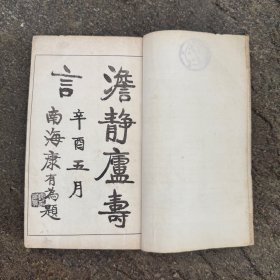 澹静廬壽
言
辛酉五月
南海康有為題